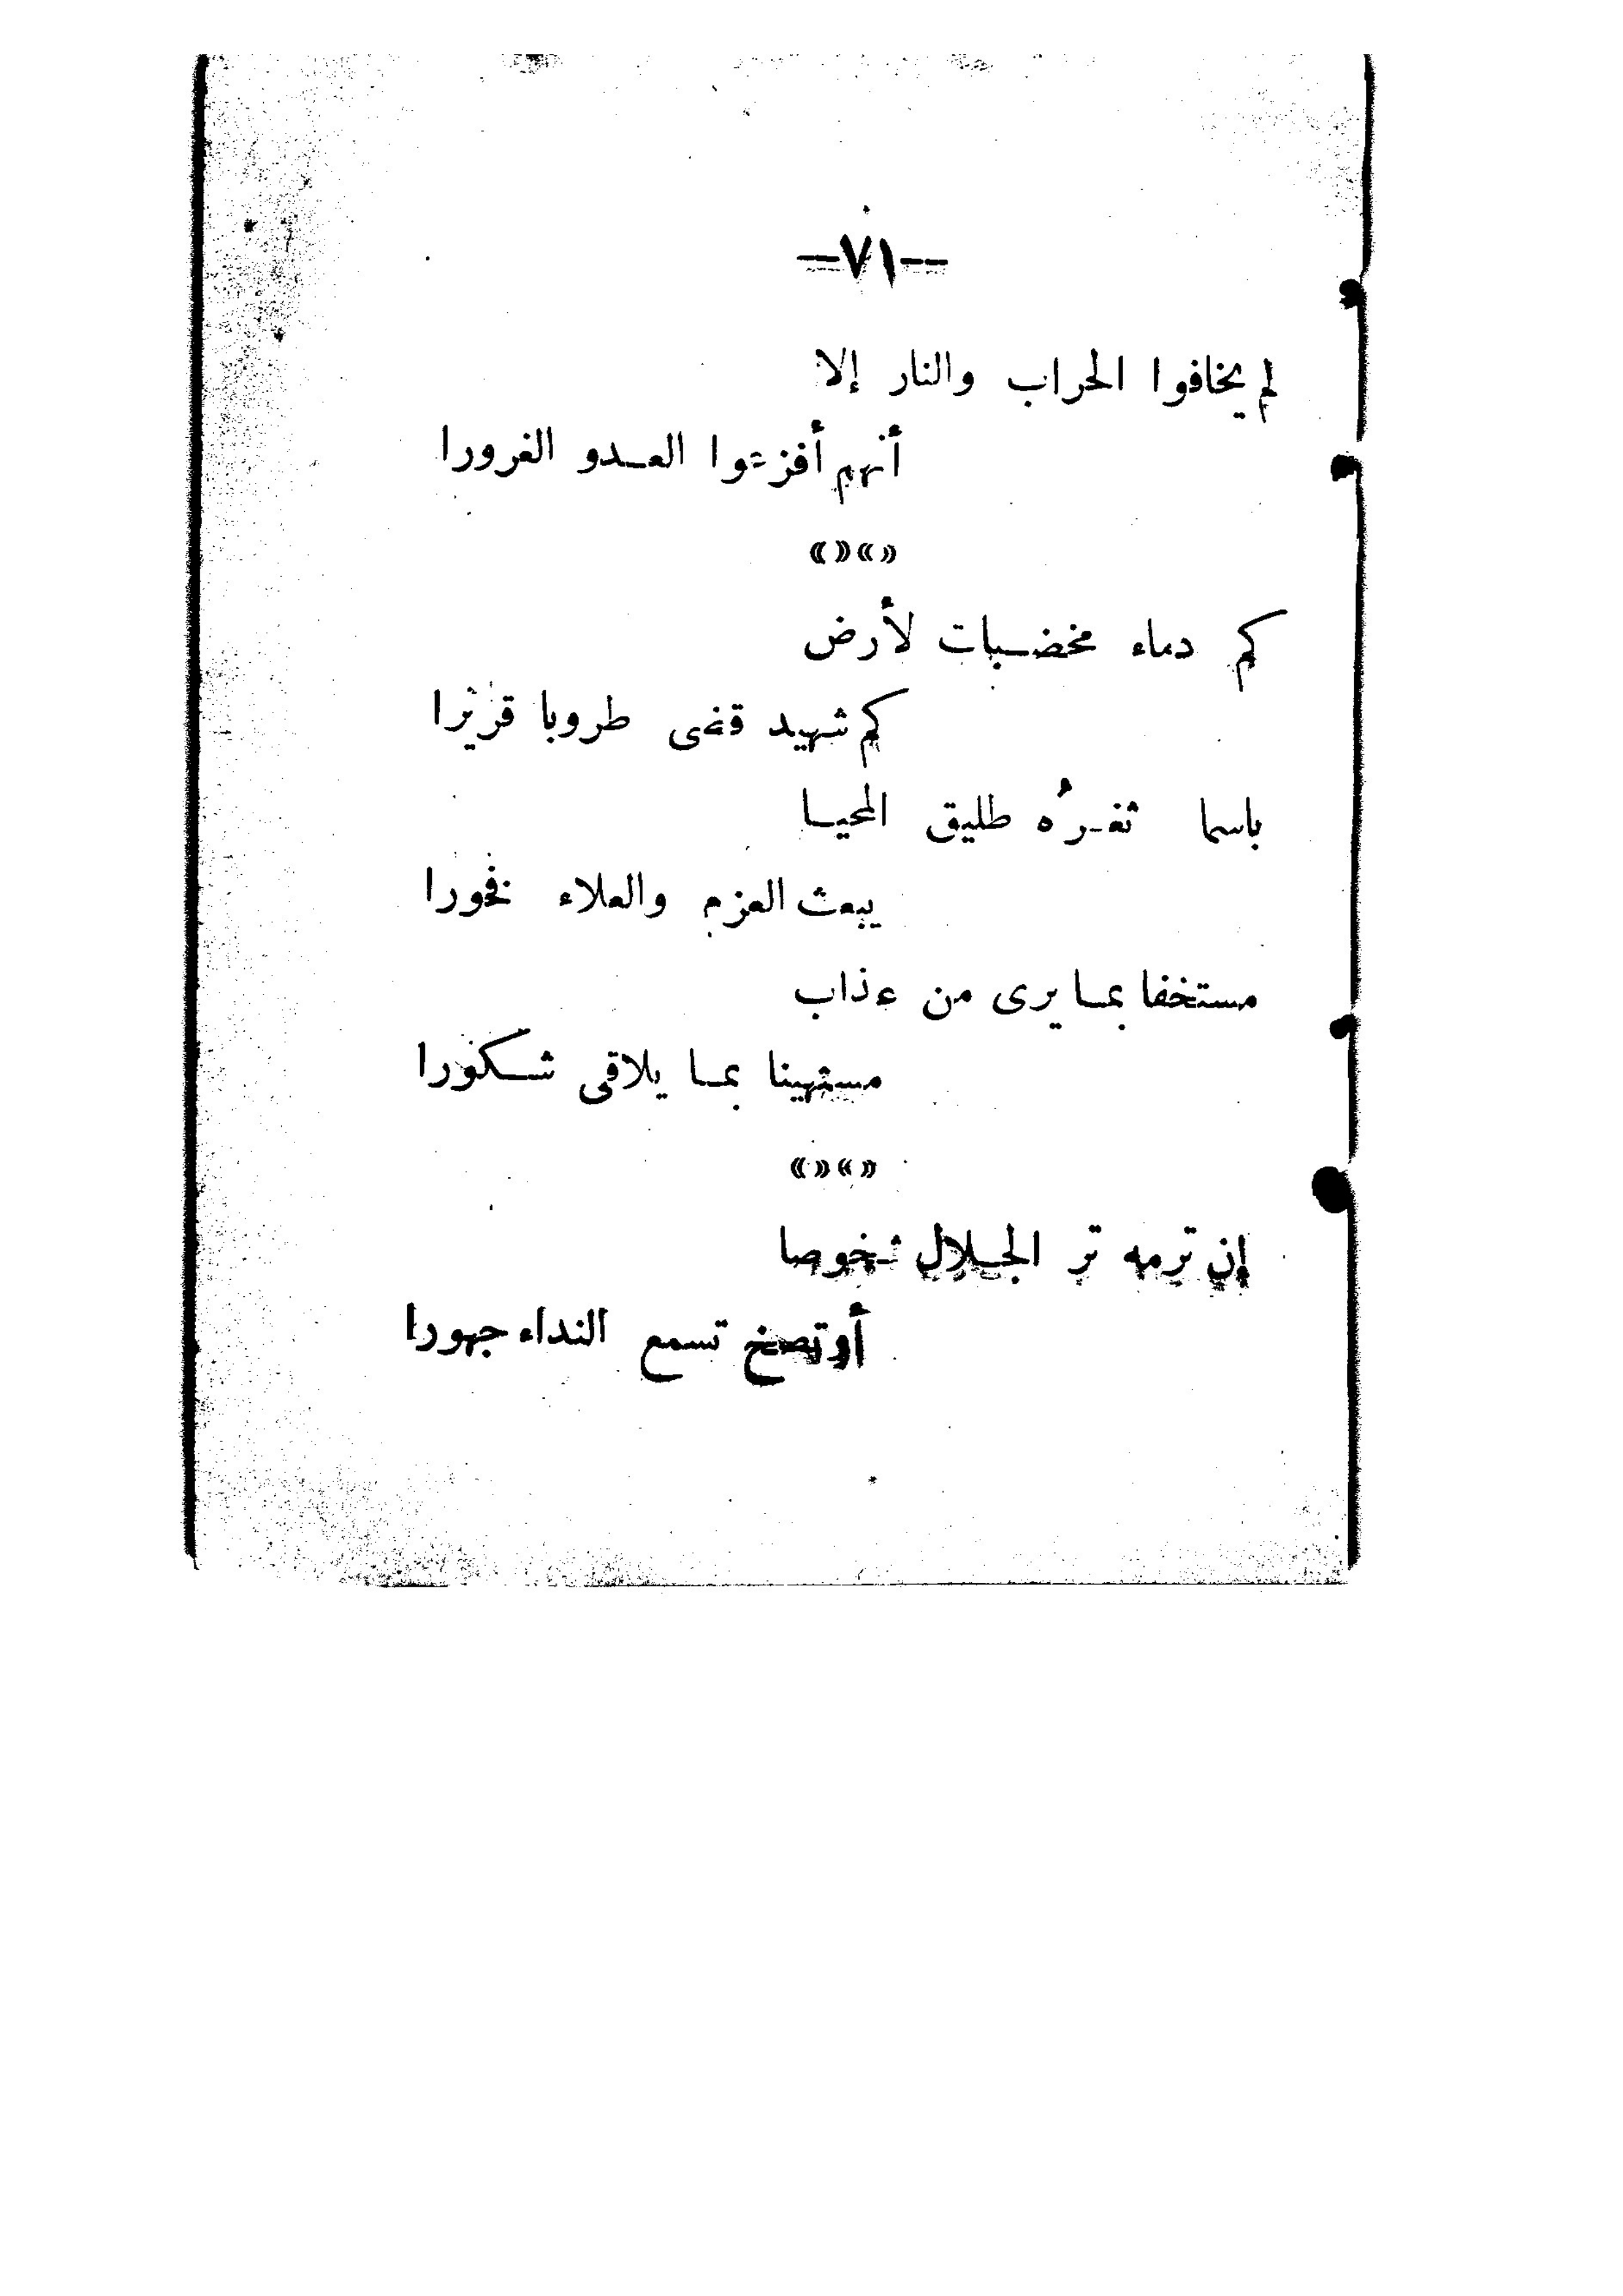 —٧١—
لم يخافوا الحراب والنار إلا
أنهم أفزعوا العدو الغرورا
«»«»
كم دماء مخضبات لأرض
كم شهيد قضى طروبا قريرا
باسما ثغرُه طليق المحيا
يبعث العزم والعلاء فخورا
مستخفا بما يرى من عذاب
مستهينا بما يلاقى شكورا
«»«»
إن ترمه تر الجلال شخوصا
أو تصخ تسمع النداء جهورا